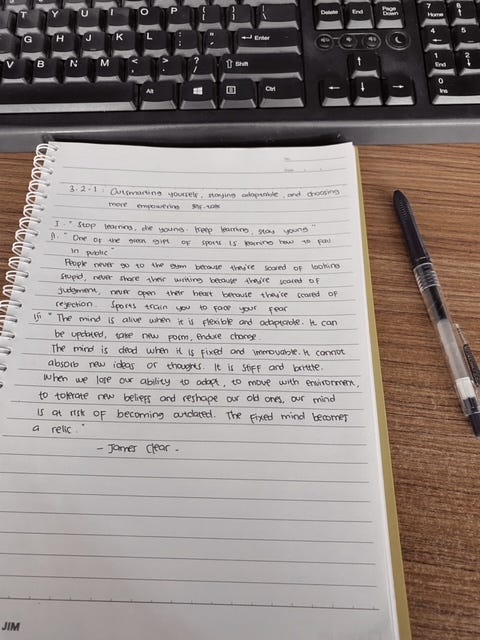 T Y U I O P { [ } ] | \
Delete End Page Down
7 Home 8
G H J K L : ; " ' Enter
4
V B N M < , > . ? / Shift
1 End 2
Alt Ctrl
0 Ins
No.
Date
3-2-1: Outsmarting yourself, staying adaptable, and choosing
more empowering self-talk
I. "Stop learning, die young. Keep learning, stay young"
II. "One of the great gift of sports is learning how to fail
in public"
People never go to the gym because they're scared of looking
stupid, never share their writing because they're scared of
judgment, never open their heart because they're scared of
rejection. Sports train you to face your fear
III "The mind is alive when it is flexible and adaptable. It can
be updated, take new form, endure change.
The mind is dead when it is fixed and immovable. It cannot
absorb new ideas or thoughts. It is stiff and brittle.
When we lose our ability to adapt, to move with environment,
to tolerate new beliefs and reshape our old ones, our mind
is at risk of becoming outdated. The fixed mind becomes
a relic."
- James Clear -
JIM